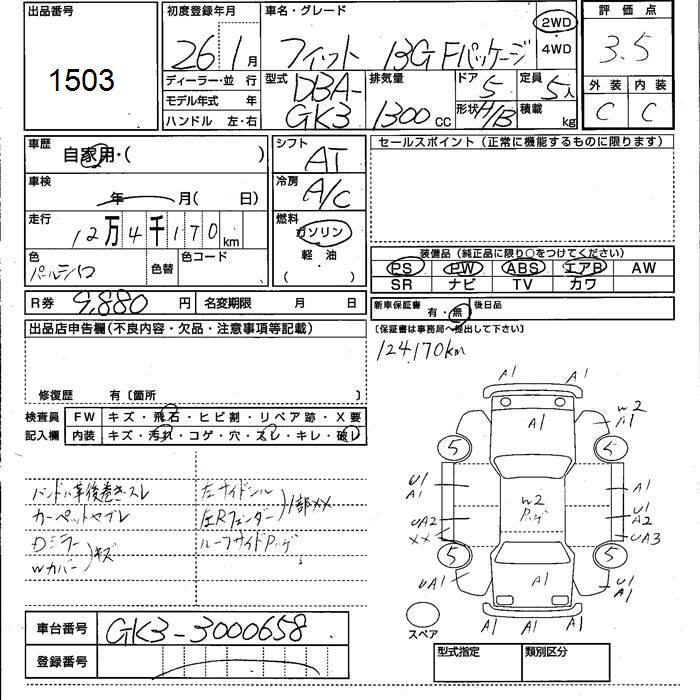 出品番号
1503
初度登録年月
26 1月
車名・グレード
フィット 13G Fパッケージ
2WD
4WD
評価点
3.5
ディーラー・並 行
モデル年式 年
ハンドル 左・右
型式
DBA-
GK3
排気量
1300 CC
ドア
5
形状 H/B
定員
5人
積載
kg
外装 内装
C C
車歴
自家用・( )
シフト
AT
車検
年 月( 日)
冷房
A/C
走行
12万4千170km
燃料
ガソリン
軽・油
( )
色
パールシロ
色替
色コード
R券 9,880円
名変期限 月 日
セールスポイント(正常に機能するものに限ります)
装備品(純正品に限り○をつけてください)
PS PW ABS エアB AW
SR ナビ TV カワ
新車保証書
有・無
後日品
(保証書は事務局へ提出して下さい)
124,170km
出品店申告欄(不良内容・欠品・注意事項等記載)
修復歴 有〔箇所 〕
検査員
記入欄
FW キズ・飛石・ヒビ割・リペア跡・X要
内装 キズ・汚れ・コゲ・穴・スレ・キレ・破レ
ハンドル革後巻き・スレ
カーペットヤブレ
Dミラー
Wカバー
キズ
左サイドシル
左Rフェンダー
1部XX
ルーフサイドPハゲ
A1
A1
A1
W2
A1
5
5
U1
A1
A1
U1
A2
UA2
XX
UA3
W2
Pハゲ
5
5
UA1
A1
U1
A1
A1
A1
A1
スペア
車台番号 GK3-3000658
登録番号
型式指定
類別区分